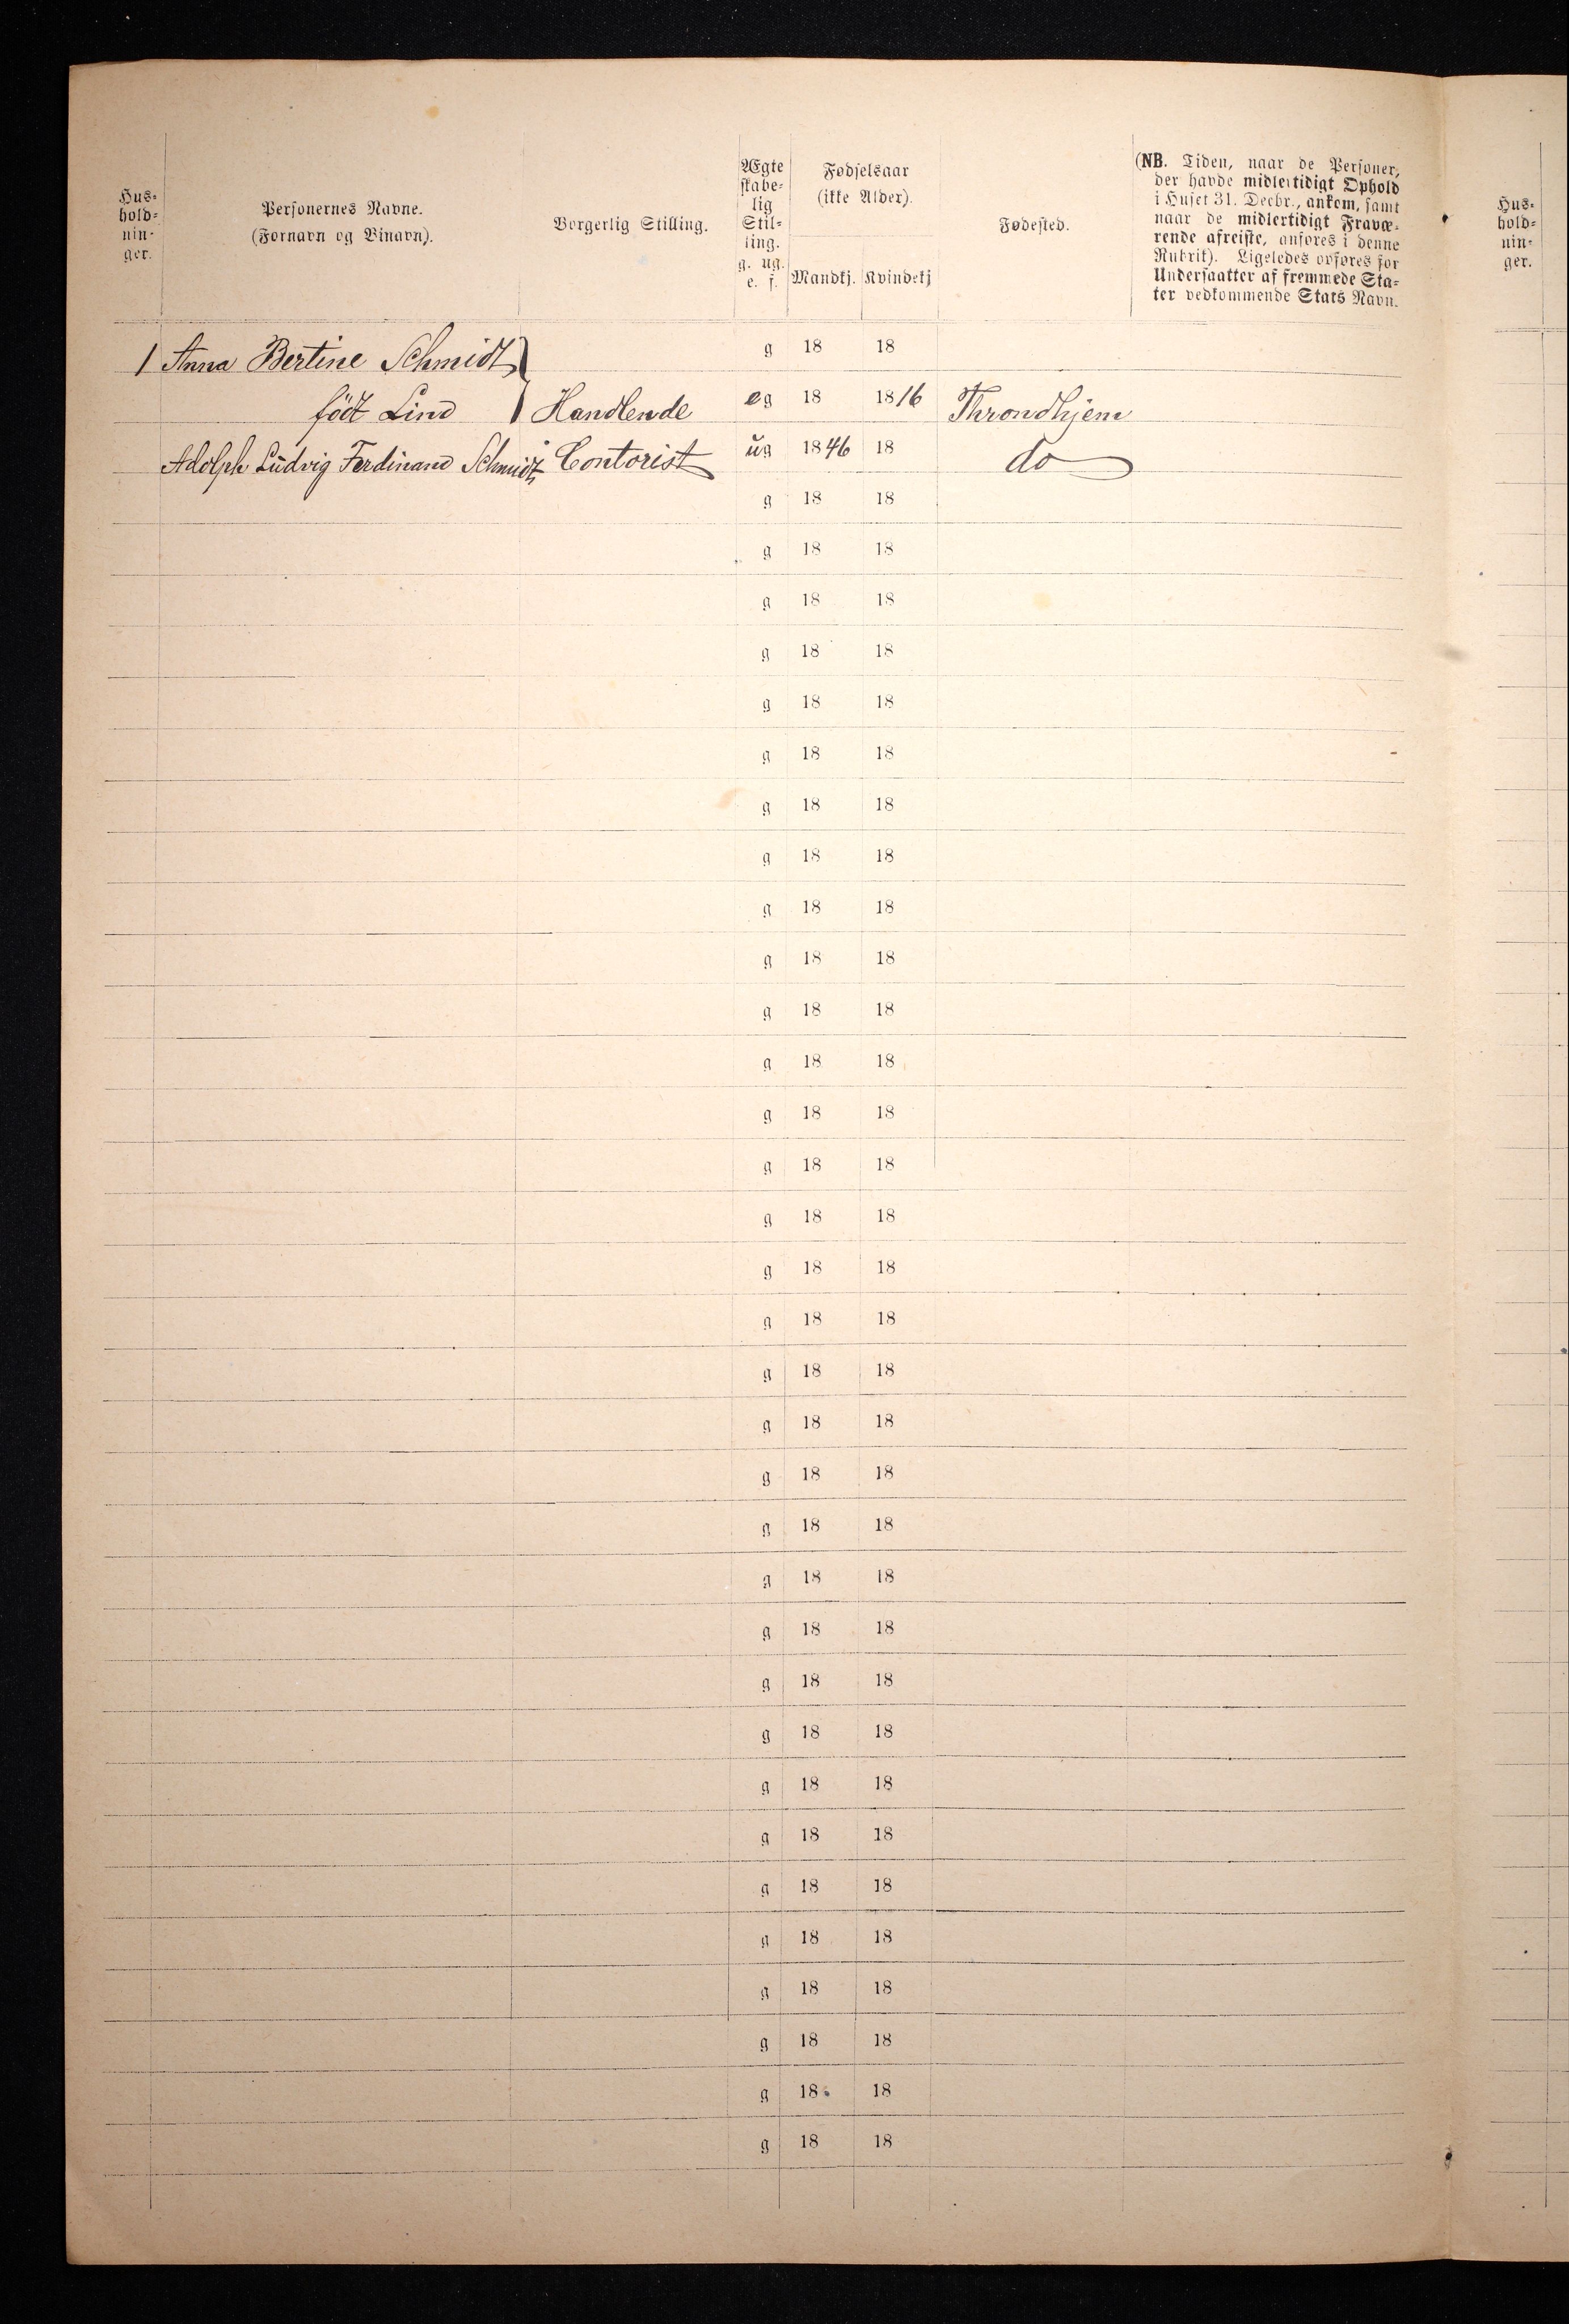 Hus-
hold-
nin-
ger.
Personernes Navne.
(Fornavn og Binavn).
Borgerlig Stilling.
Ægte
skabe-
lig
Stil-
ling.
g. ug.
e. f.
Fødselsaar
(ikke Alder).
Mandkj. Kvindekj
Fødested.
(NB. Tiden, naar de Personer,
der havde midlertidigt Ophold
i Huset 31. Decbr., ankom, samt
naar de midlertidigt Fravæ-
rende afreiste, anføres i denne
Rubrik). Ligeledes opføres for
Undersaatter af fremmede Sta-
ter vedkommende Stats Navn.
Hus-
hold-
nin-
ger.
1 Anna Bertine Schmidt g 18 18
födt Lind Handlende eg 18 1816 Throndhjem
Adolph Ludvig Ferdinand Schmidt Contorist ug 1846 18 do
g 18 18
g 18 18
g 18 18
g 18 18
g 18 18
g 18 18
g 18 18
g 18 18
g 18 18
g 18 18
g 18 18
g 18 18
g 18 18
g 18 18
g 18 18
g 18 18
g 18 18
g 18 18
g 18 18
g 18 18
g 18 18
g 18 18
g 18 18
g 18 18
g 18 18
g 18 18
g 18 18
g 18 18
g 18 18
g 18 18
g 18 18
g 18 18
g 18 18